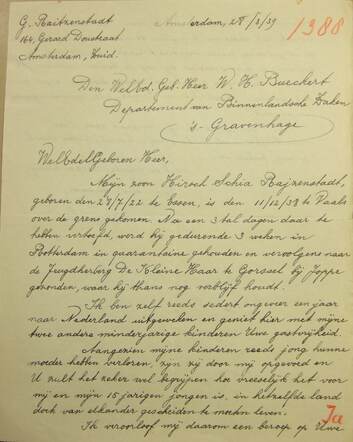 G. Raitzenstadt
164, Gerard Doustraat
Amsterdam, Zuid.
Amsterdam, 28/2/39
1388
Den Welbd. Geb. Heer W. H. Bueckert
Departement van Binnenlandsche Zaken
's-Gravenhage
WelEdelGeboren Heer,
Mijn zoon Hirsch Schia Rajzenstadt,
geboren den 27/7/22 te Essen, is den 11/12/38 te Vaals
over de grens gekomen. Na een 3 tal dagen daar te
hebben vertoefd, werd hij gedurende 3 weken in
Rotterdam in quarantaine gehouden en vervolgens naar
de Jeugdherberg De Kleine Haar te Gorssel bij Joppe
gezonden, waar hij thans nog verblijf houdt.
Ik ben zelf reeds sedert ongeveer een jaar
naar Nederland uitgeweken en geniet hier met mijne
twee andere minderjarige kinderen Uwe gastvrijheid.
Aangezien mijne kinderen reeds jong hunne
moeder hebben verloren, zijn zij door mij opgevoed en
U zult het zeker wel begrijpen hoe vreeselijk het voor
mij en mijn 15 jarigen jongen is, in hetzelfde land
doch van elkander gescheiden te moeten leven.
Ik veroorloof mij daarom een beroep op Uwe
7a